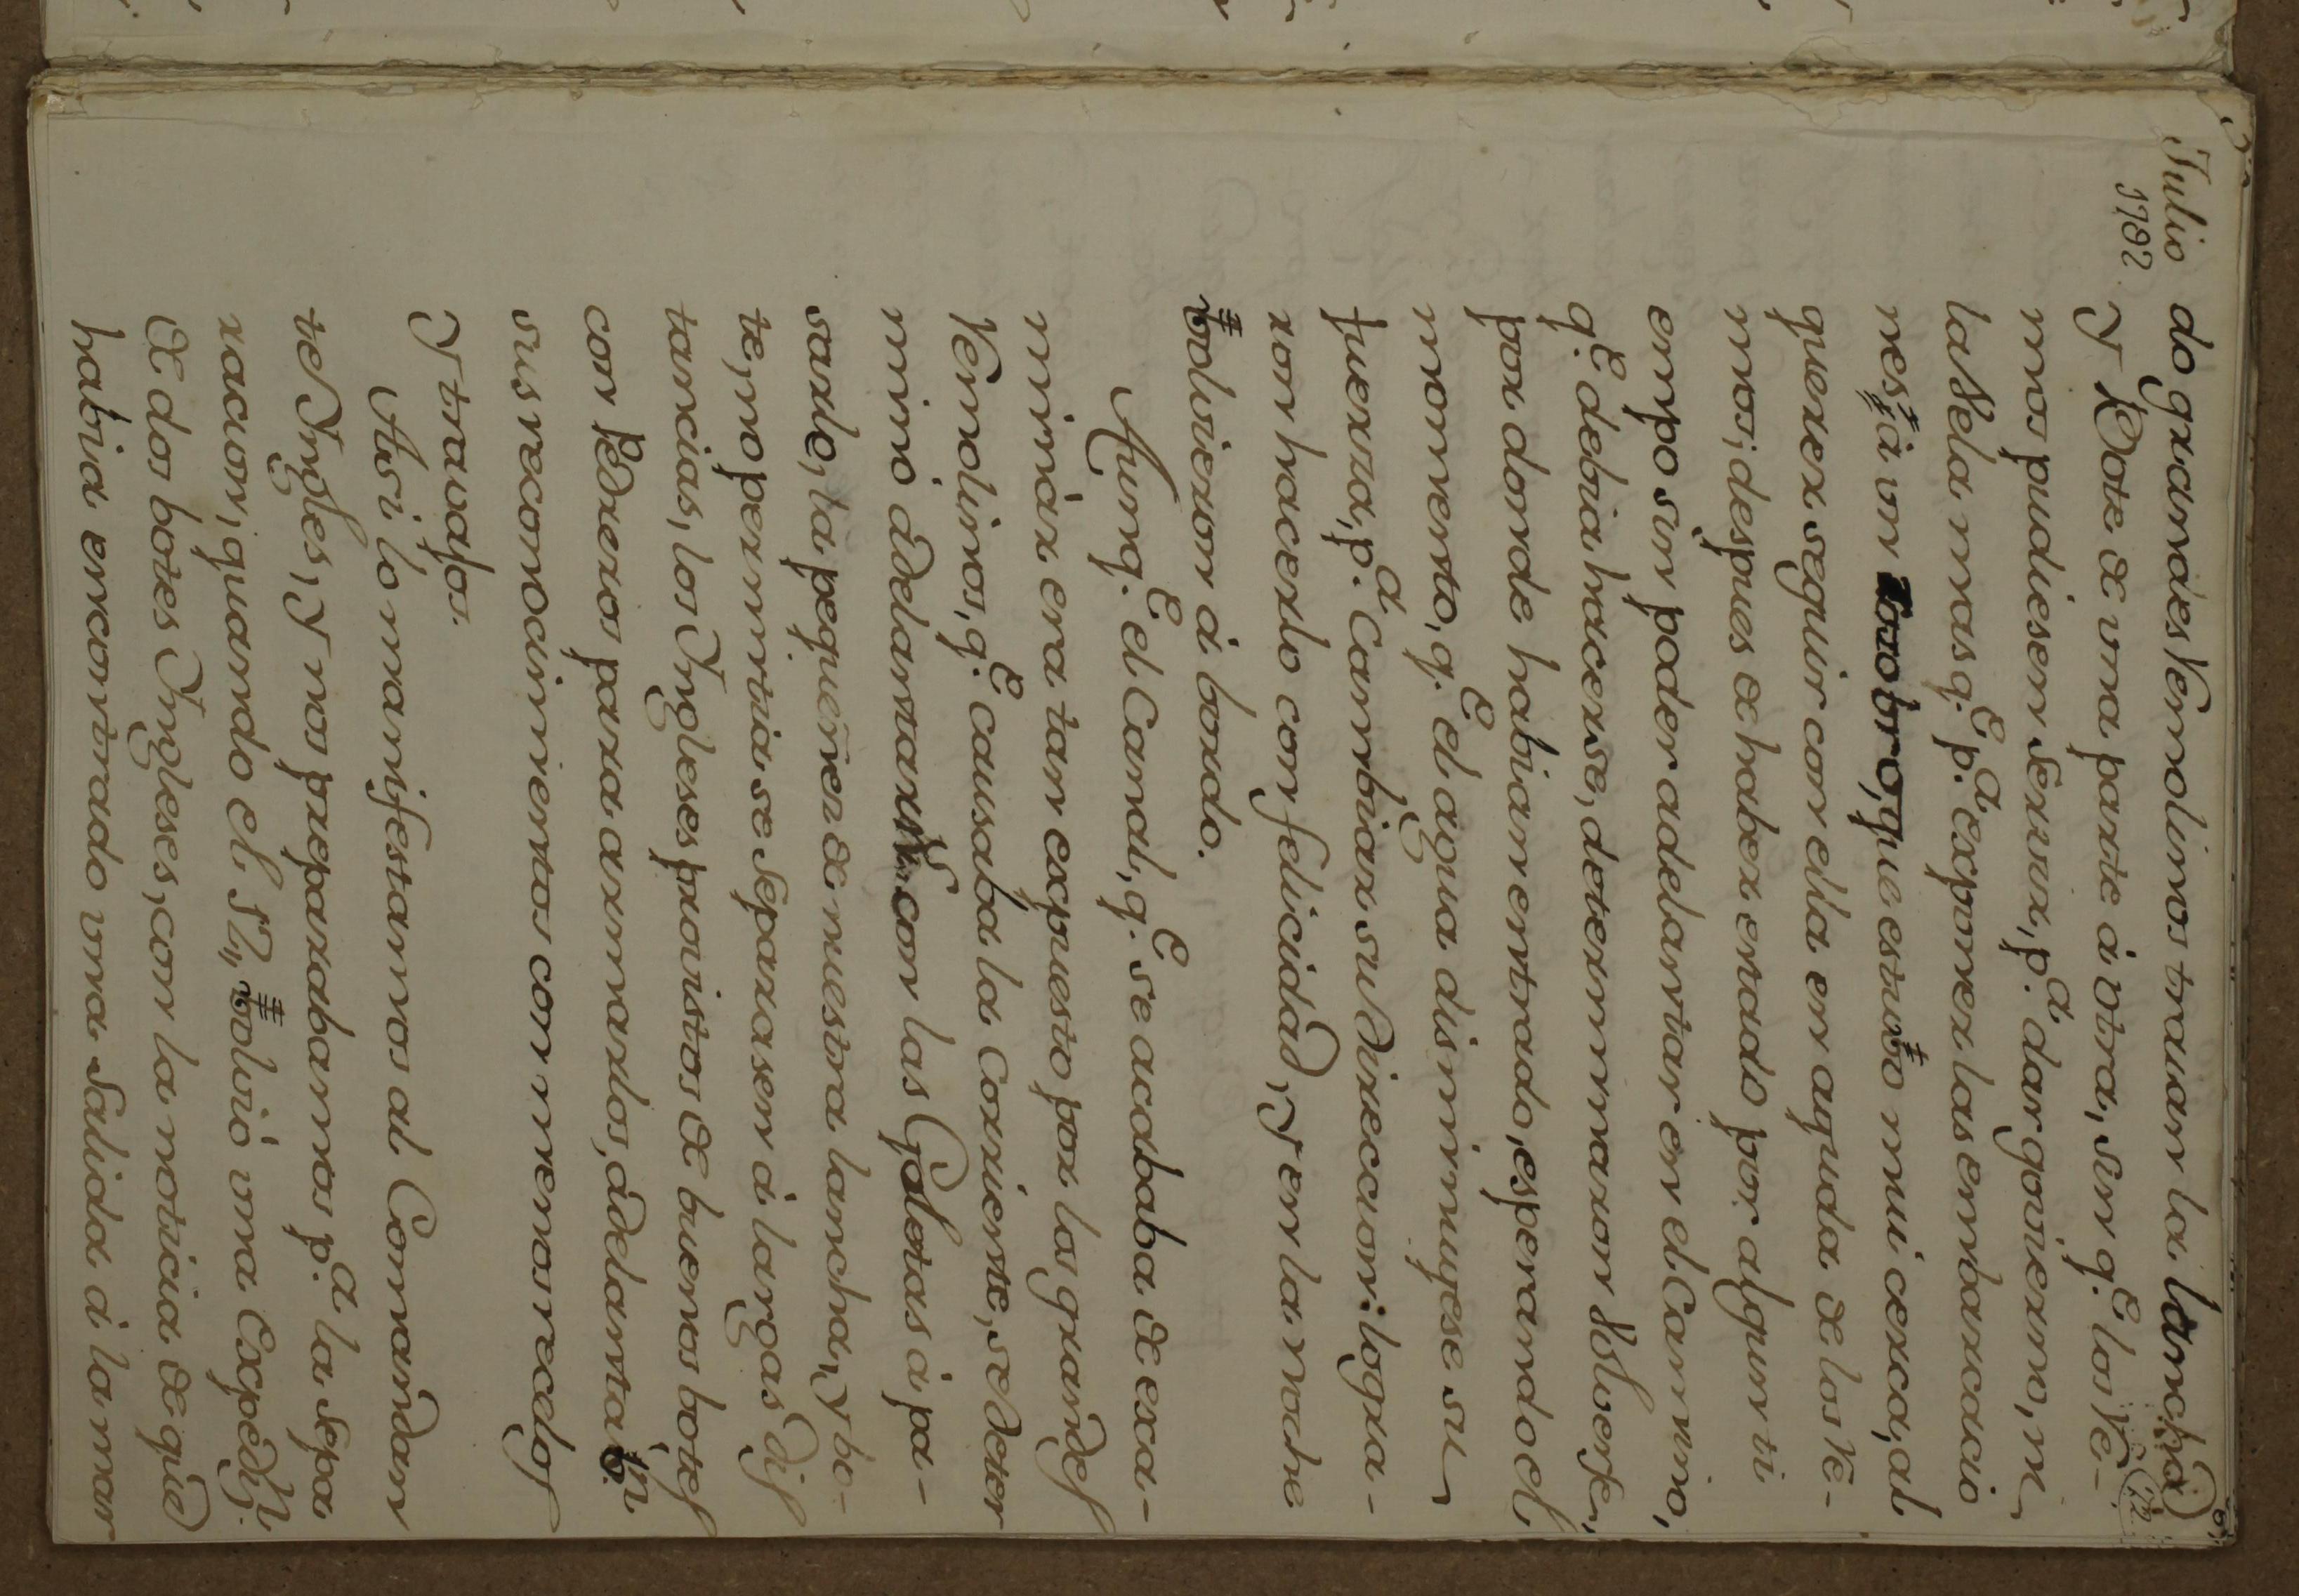 Julio
1782
12
do grandes Vemolinos traian la lancha
y Bote de una parte à otra, sin q.e los re-
mos pudiesen servir, p.a dar govierno, ni
la Vela mas q.e p.a exponer las embarcacio
nes à un zozobro, que estubo mui cerca, al
querer seguir con ella en ayuda de los re-
mos; despues de haber estado por algun ti
empo sin poder adelantar en el Camino,
q.e debia hacerse, determinaron Volverse,
por donde habian entrado, esperando el
momento, q.e el agua disminuyese su
fuerza, p.a Cambiar su Direccion: logra-
ron hacerlo con felicidad, y en la noche
volvieron à bordo.
Aunq.e el Canal, q.e se acababa de exa-
minàr era tan expuesto por los grandes
Remolinos, q.e causaba la Corriente, se deter
minò adelantar con las Goletas à pa-
sarlo, la pequeñez de nuestra lancha, y bo-
te, no permitia se Separasen à largas dis
tancias, los Ingleses provistos de buenos botes
con Pedreros para armarlos, adelantab.n
sus reconocimientos con menos recelos
y travajos.
Asi lo manifestamos al Comandan
te Ingles, y nos preparabamos p.a la Sepa
racion, quando el 12,, volviò una Expedi.n
de dos botes Ingleses, con la noticia de que
habia encontrado una Salida à la mar